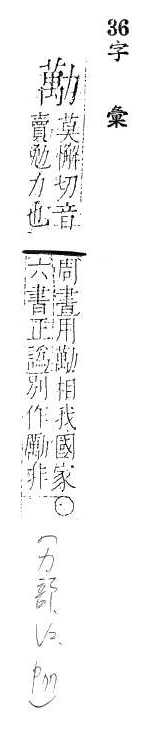 36字 彙
勱
莫懈切音
賣勉力也
周書用勱相我國家○
六書正譌別作勵非
(力部、